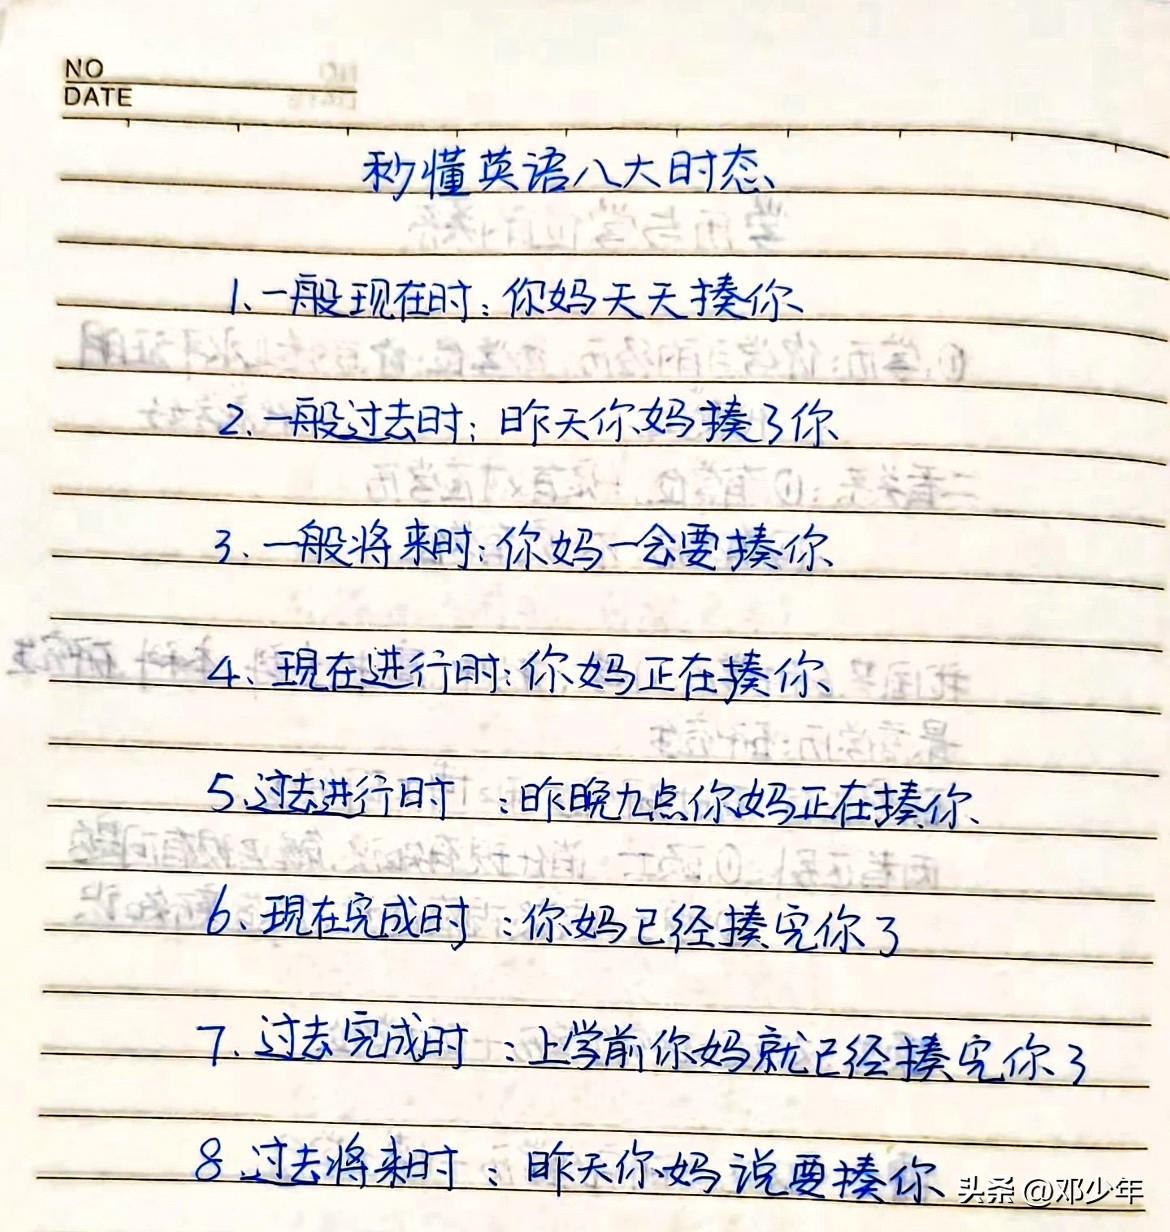 NO
DATE
秒懂英语八大时态
1、一般现在时：你妈天天揍你
2、一般过去时：昨天你妈揍了你
3、一般将来时：你妈一会要揍你
4、现在进行时：你妈正在揍你
5、过去进行时：昨晚九点你妈正在揍你
6、现在完成时：你妈已经揍完你了
7、过去完成时：上学前你妈就已经揍完你了
8、过去将来时：昨天你妈说要揍你
头条 @邓少年